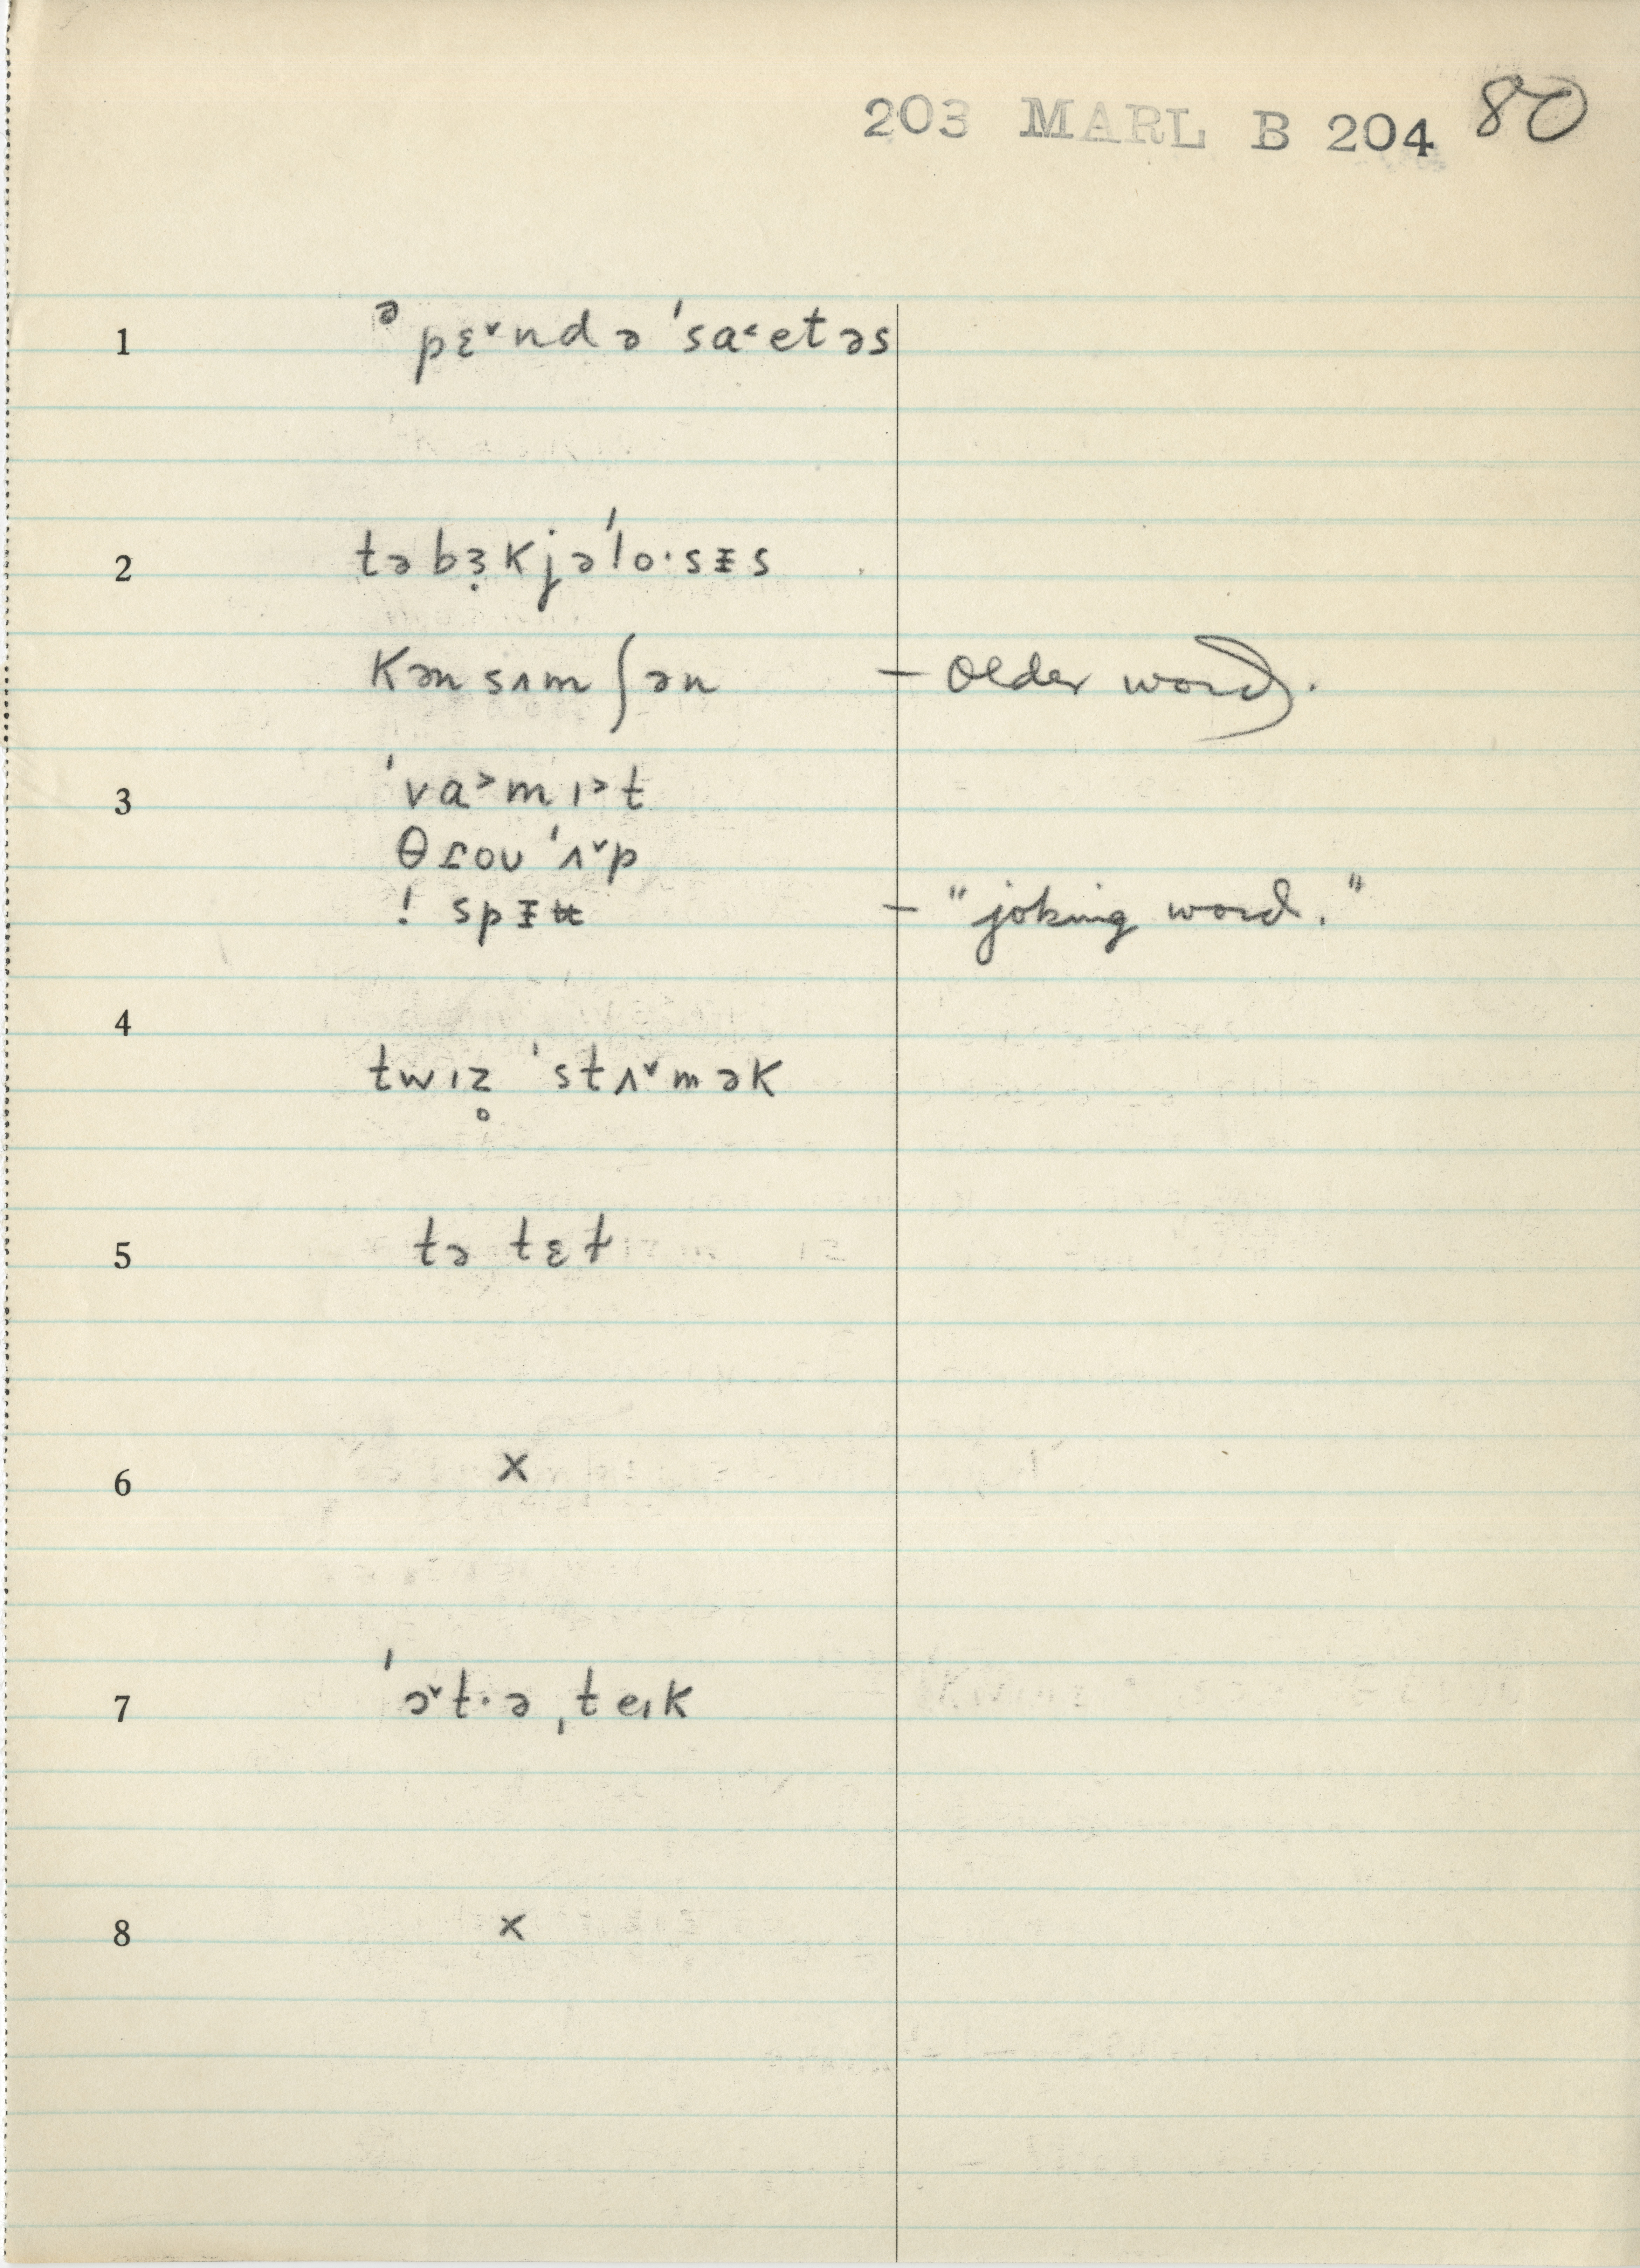 203 MARL B 204 80
1 ᵊpɛ˅ndə ˈsa˂etəs
2 təbɜ̣kjəˈlo·sɪs
kənsʌmʃən – older word.
3 ˈva˃mɪ˃t
θɾoʊ ˈʌ˅p
! spɪu – "joking word."
4 twɪz̥ ˈstʌ˅mək
5 tə tɛt
6 x
7 ˈə˅t·əˌteɪk
8 x